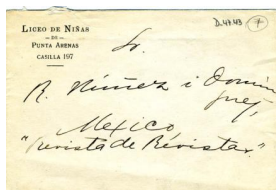 LICEO DE NIÑAS
— DE —
PUNTA ARENAS
CASILLA 197
D.47.43
Sr.
R. Núñez i Domin
guez,
México,
"Revista de Revistas"